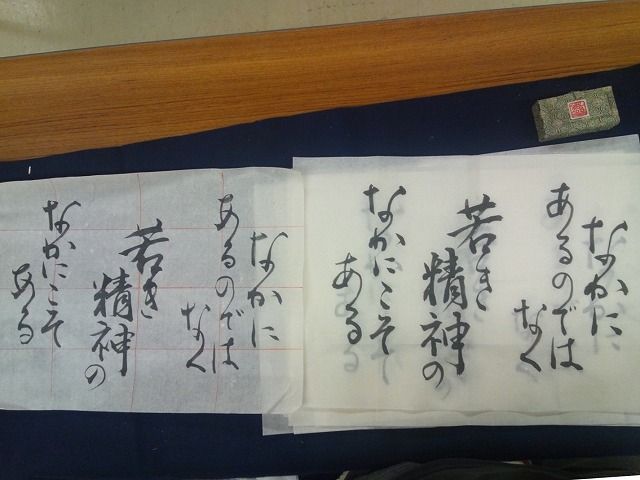 なかに
あるのでは
なく
若き
精神の
なかにこそ
ある
なかに
あるのでは
なく
若き
精神の
なかにこそ
ある